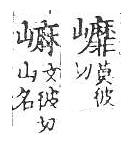 莫彼
切
文彼切
山名